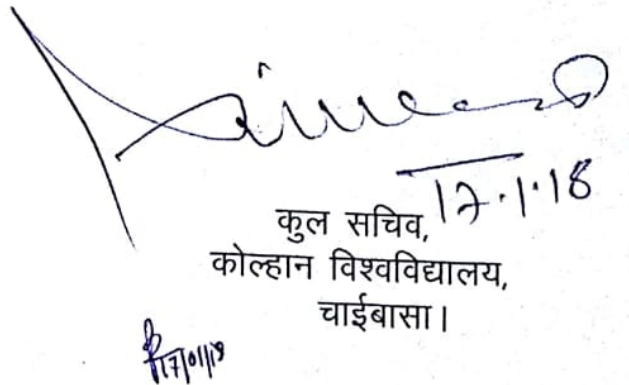 17.1.18
कुल सचिव,
कोल्हान विश्वविद्यालय,
चाईबासा।
17/01/18